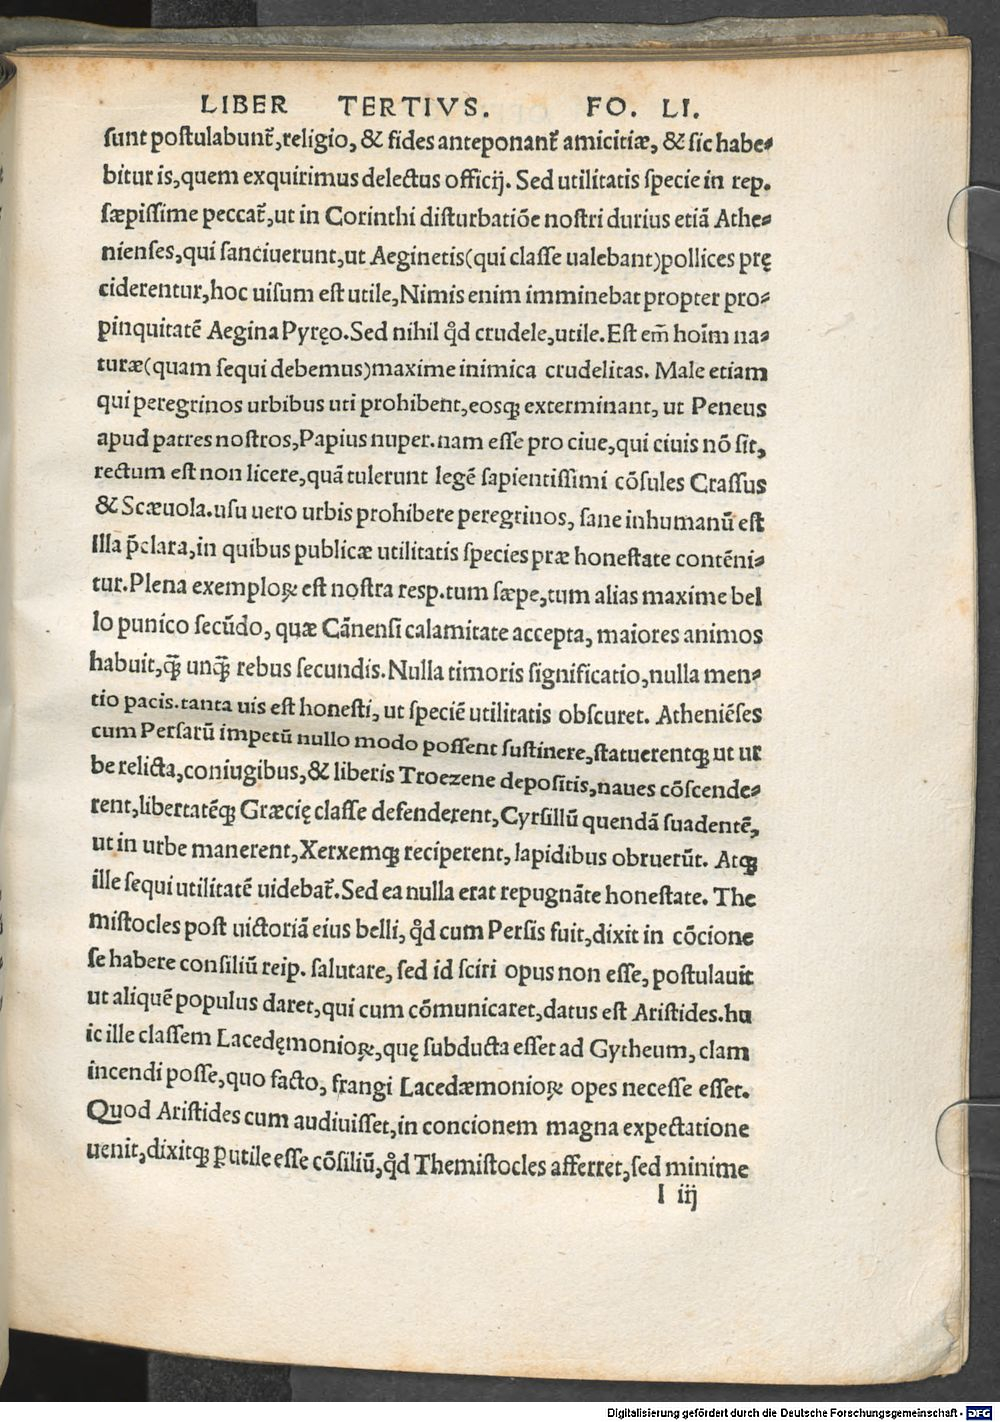 LIBER TERTIVS. FO. LI.
sunt postulabunt᷑,religio, & fides anteponant᷑ amicitiæ, & sic habe⸗
bitur is,quem exquirimus delectus officij. Sed utilitatis specie in rep.
sæpissime peccat᷑,ut in Corinthi disturbatiōe nostri durius etiā Athe⸗
nienses,qui sanciuerunt,ut Aeginetis(qui classe ualebant)pollices prę
ciderentur,hoc uisum est utile,Nimis enim imminebat propter pro⸗
pinquitatē Aegina Pyręo.Sed nihil qd̛ crudele,utile.Est em̄ hoīm na⸗
turæ(quam sequi debemus)maxime inimica crudelitas. Male etiam
qui peregrinos urbibus uti prohibent,eosq; exterminant, ut Peneus
apud patres nostros,Papius nuper.nam esse pro ciue,qui ciuis nō sit,
rectum est non licere,quā tulerunt legē sapientissimi cōsules Crassus
& Scæuola.usu uero urbis prohibere peregrinos, sane inhumanū est
Illa p̄clara,in quibus publicæ utilitatis species præ honestate contēni⸗
tur.Plena exemploꝝ est nostra resp.tum sæpe,tum alias maxime bel
lo punico secūdo, quæ Cānensi calamitate accepta, maiores animos
habuit,q̄ꝫ unq̄ꝫ rebus secundis.Nulla timoris significatio,nulla men⸗
tio pacis.tanta uis est honesti, ut speciē utilitatis obscuret. Atheniēses
cum Persarū impetū nullo modo possent sustinere,statuerentq; ut ur
be relicta,coniugibus,& liberis Troezene depositis,naues cōscende⸗
rent,libertatēq; Græcię classe defenderent,Cyrsillū quendā suadentē,
ut in urbe manerent,Xerxemq; reciperent, lapidibus obruerūt. Atq;
ille sequi utilitatē uidebat᷑.Sed ea nulla erat repugnāte honestate. The
mistocles post uictoriā eius belli, qd̛ cum Persis fuit,dixit in cōcione
se habere consiliū reip. salutare, sed id sciri opus non esse, postulauit
ut aliquē populus daret,qui cum cōmunicaret,datus est Aristides.hu
ic ille classem Lacedęmonioꝝ,quę subducta esset ad Gytheum, clam
incendi posse,quo facto, frangi Lacedæmonioꝝ opes necesse esset.
Quod Aristides cum audiuisset,in concionem magna expectatione
uenit,dixitq; ꝑutile esse cōsiliū,qd̛ Themistocles afferret,sed minime
I iij
Digitalisierung gefördert durch die Deutsche Forschungsgemeinschaft - DFG